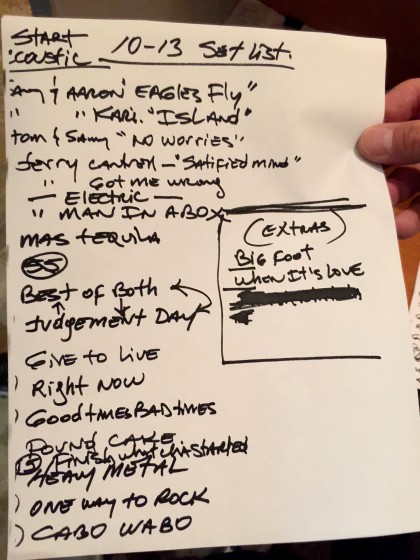 START
coustic 10-13 Set List.
my & AARON "EAGLES Fly"
" " KARI. "ISLAND"
tom & SAmy "NO WORRIES"
Jerry CANTRELL - "SAtIFIED MIND"
" Got me wrong
— Electric —
" MAN IN A BOX
MAS tEQUILA
55
BEST of Both
JUdgEMENT DAY
(EXTRAS)
BIG FOOT
WHEN It'S LOVE
GIVE to LIVE
Right NOW
GOODtIMESBADtIMES
POUND CAKE
FINISH WHAT YA STARTED
HEAVY METAL
ONE WAY to ROCK
CABO WABO